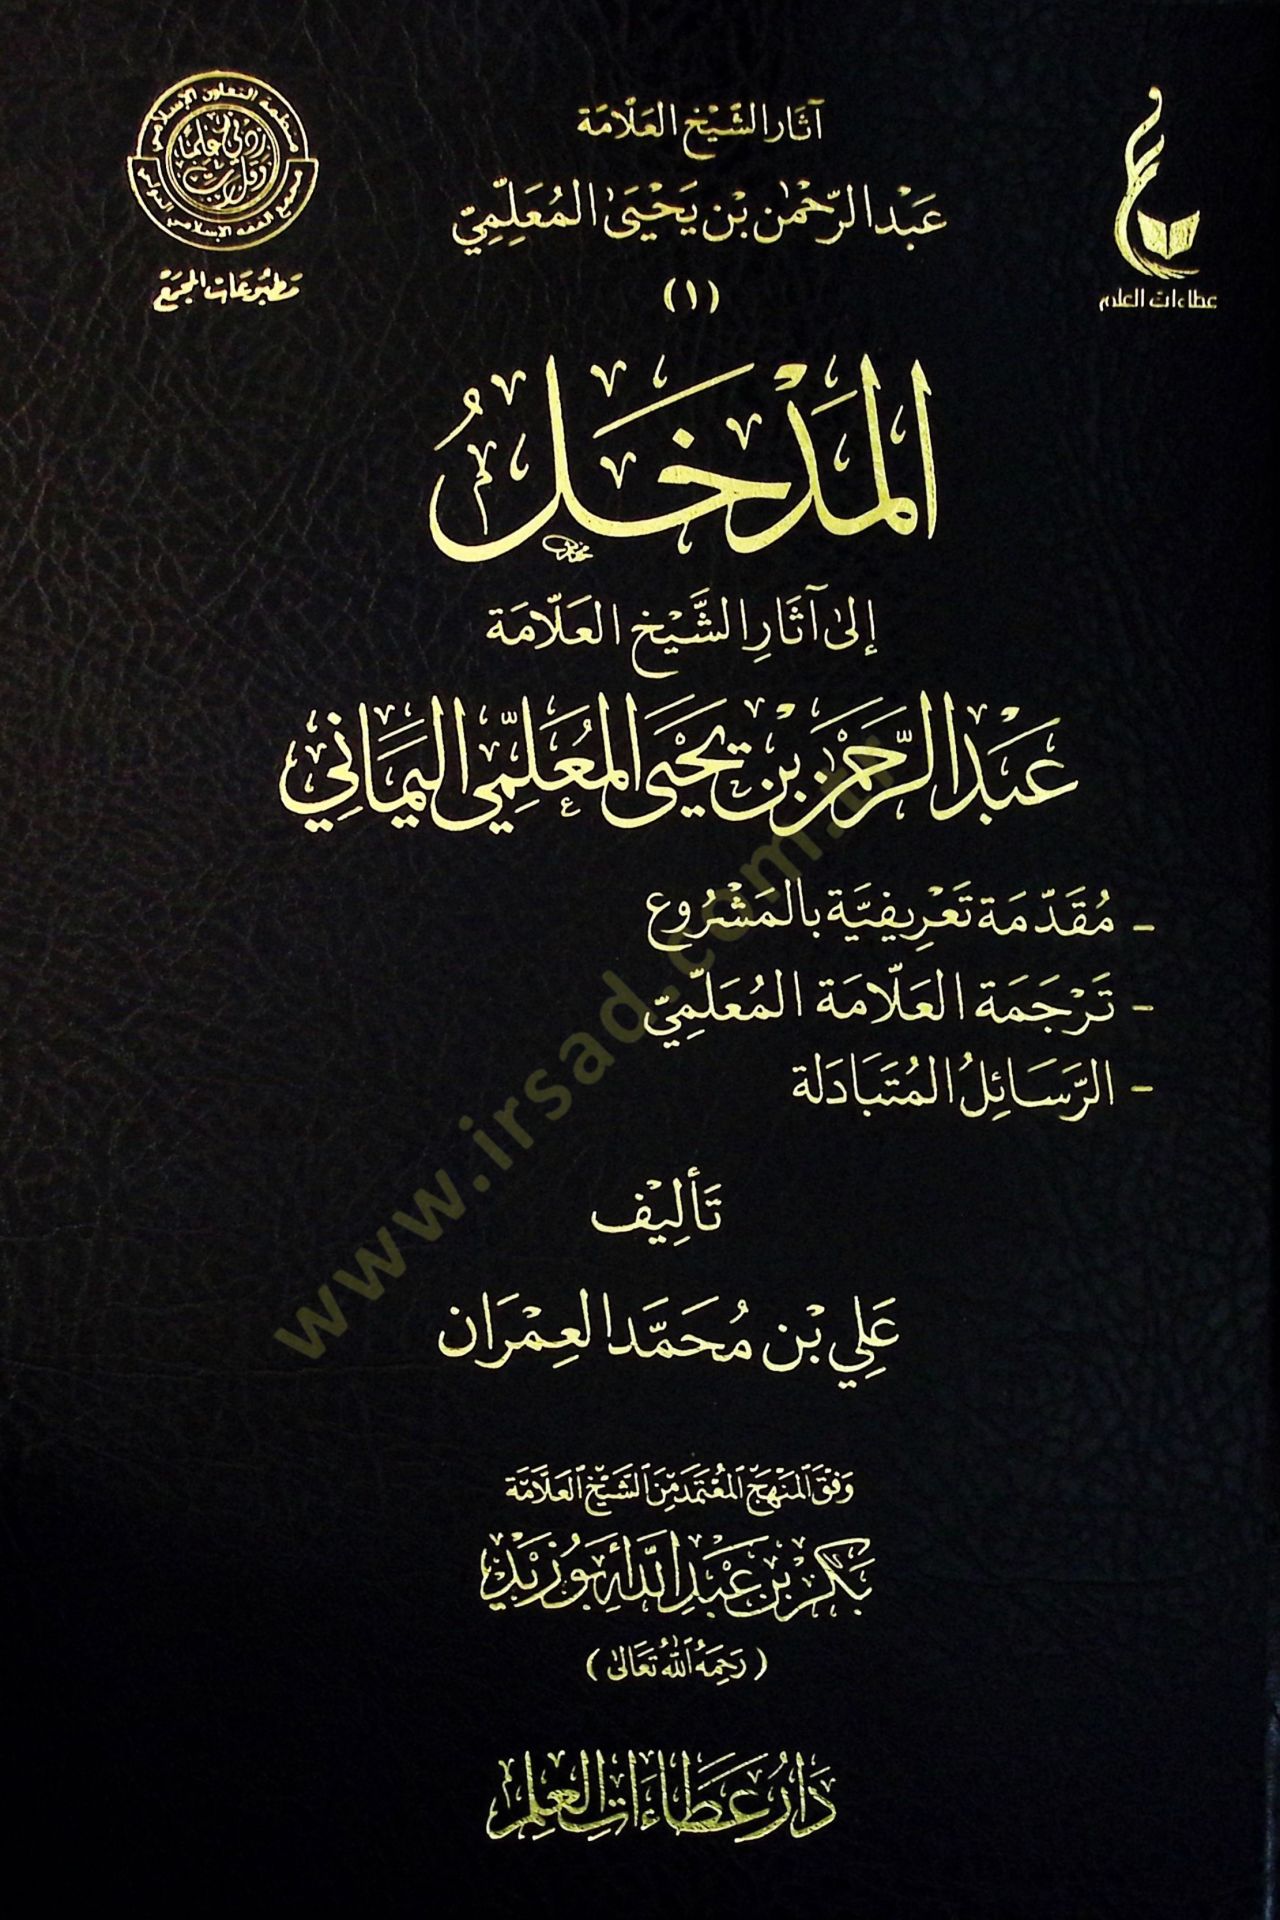 آثَار الشَّيْخ العَلَّامَة
عَبْد الرَّحْمٰن بْن يَحْيَىٰ المُعَلِّمِيّ
(١)
منظمة التعاون الإسلامي
وقل رب زدني علما
مجمع الفقه الإسلامي الدولي
مطبوعات المجمع
عطاءات العلم
المَدْخَلُ
إلىٰ آثَارِ الشَّيْخ العَلَّامَة
عَبْد الرَّحْمٰن بْن يَحْيَى المُعَلِّمِي اليَمَانِي
- مُقَدّمَة تَعْرِيفِيَّة بالمَشْرُوع
- تَرْجَمَة العَلَّامَة المُعَلِّمِيّ
- الرَّسَائِلُ المُتَبَادَلة
تَأْلِيْف
عَلِي بْن مُحَمَّد العِمْرَان
وَفْقَ المَنْهَج المُعْتَمَد مِنَ الشَّيْخ العَلَّامَة
بَكْر بْن عَبْد اللَّه أَبُو زَيْد
(رَحِمَهُ اللهُ تَعَالىٰ)
دَارُ عَطَاءَاتِ العِلْم
www.irsad.com.tr